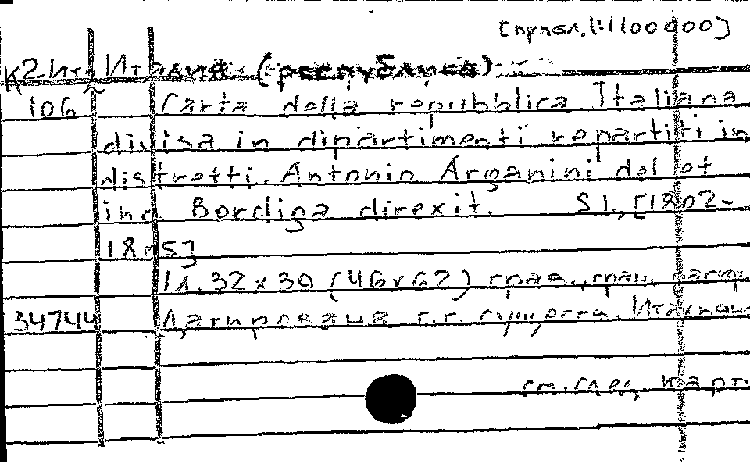 [прибл. 1:1100000]
К2-Ит Италия (республика)
106 Carta della repubblica Italiana
divisa in dipartimenti repartiti in
distretti. Antonio Arganini del et
inc Bordiga direxit. S.l., [1802-
1805]
1 л. 32x30 (46x62) грав., гран. раскр.
34744 Датирована г.г. существ. Итальян
см. след. карт.